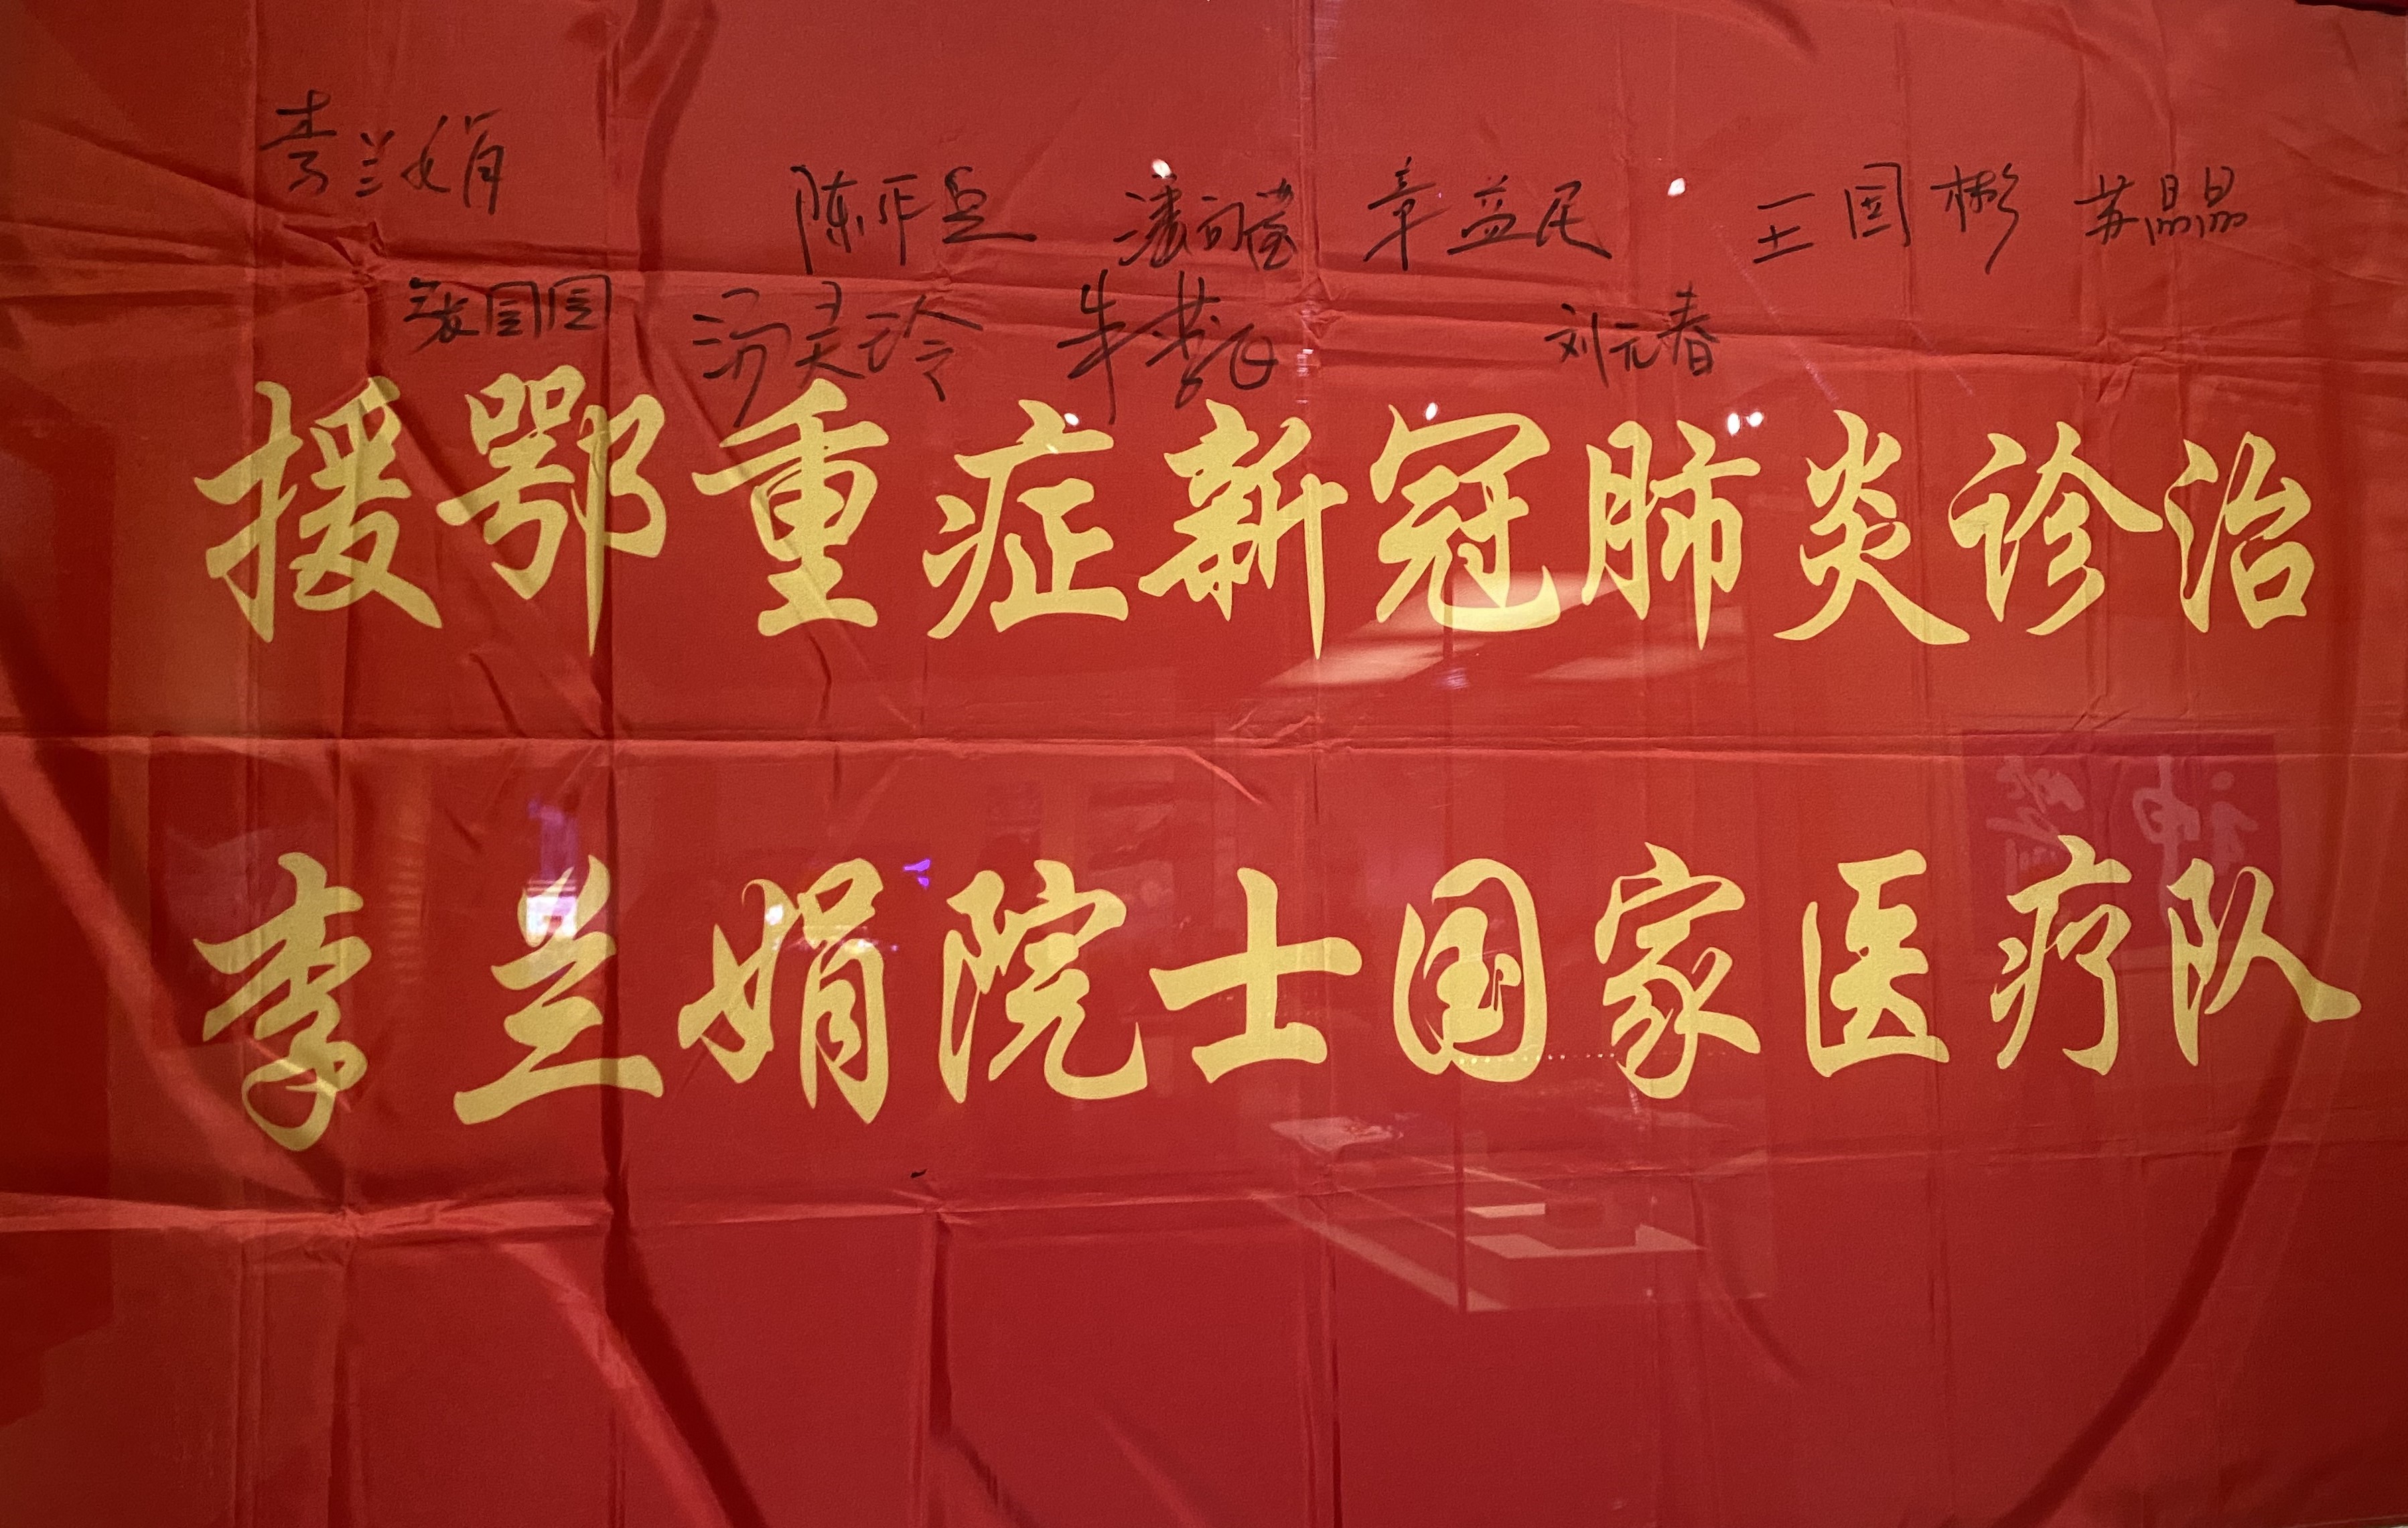 李兰娟 陈作兵 潘向滢 章益民 王国彬 苏晶晶
张园园 汤灵玲 朱梦 刘元春
援鄂重症新冠肺炎诊治
李兰娟院士国家医疗队